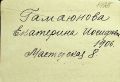 Гамаюнова
Екатерина Иосифовна
1906.
Мастерская 8